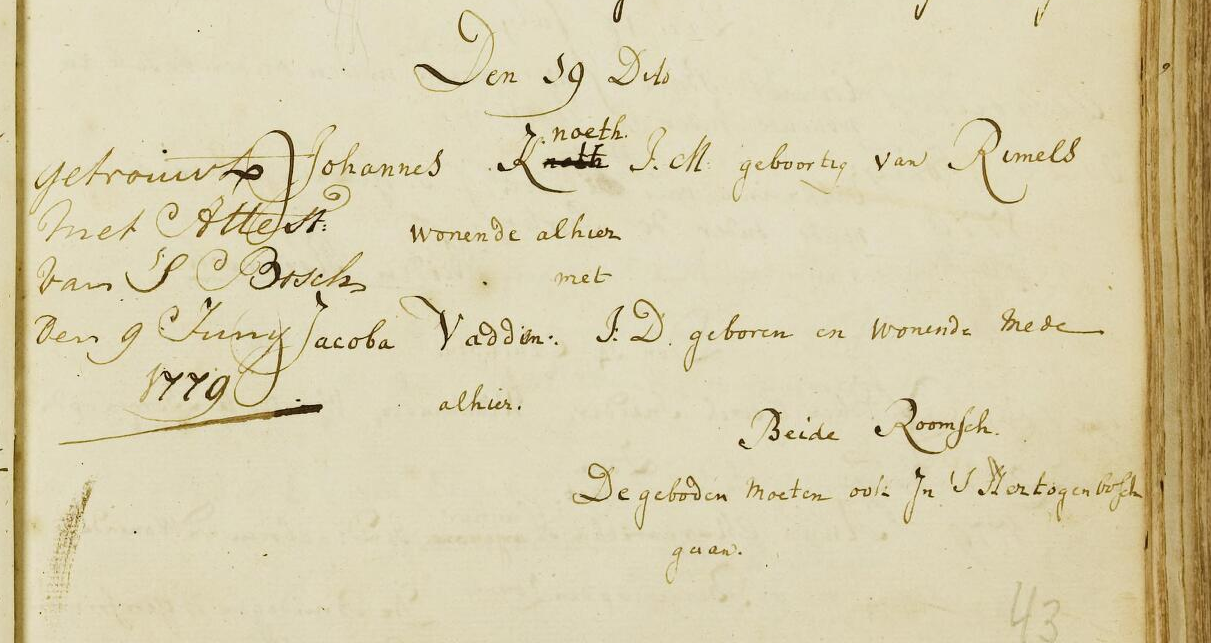 Den 19 Dito
noeth.
getrouwt Johannes K noeth J. M. geboortig van Remels
Met Attest: wonende alhier
van S Bosch met
Den 9 Juny Jacoba Vaddin: J. D. geboren en wonende mede
1779 alhier.
Beide Roomsch.
De geboden moeten ook In 'S Hertogenbosch
gaan.
43